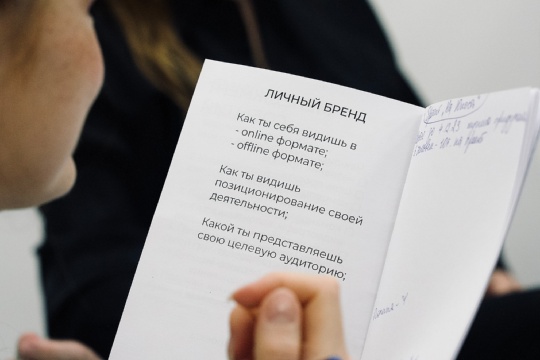 ЛИЧНЫЙ БРЕНД
Как ты себя видишь в
- online формате;
- offline формате;
Как ты видишь
позиционирование своей
деятельности;
Какой ты представляешь
свою целевую аудиторию;